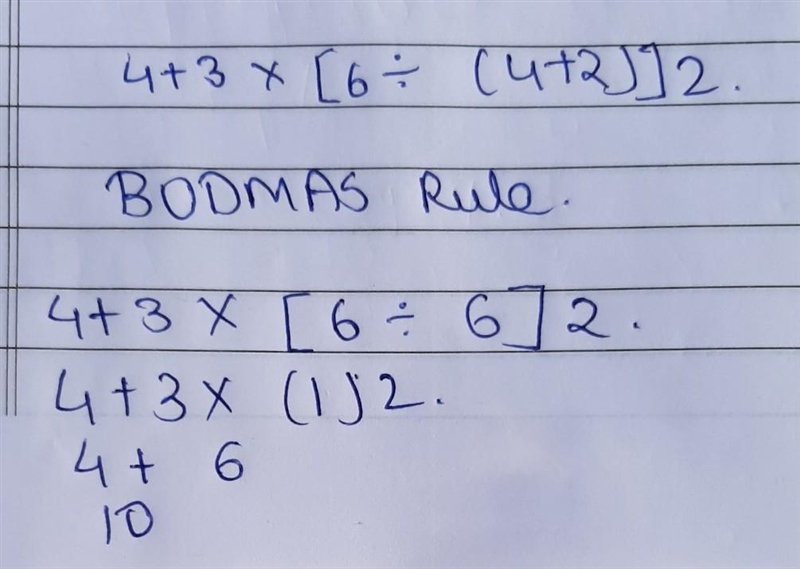 4+3 × [6 ÷ (4+2)] 2.
BODMAS Rule.
4+3 × [6 ÷ 6] 2.
4+3 × (1) 2.
4+ 6
10